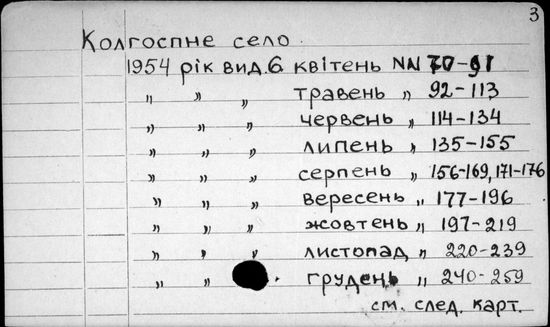 3
Колгоспне село.
1954 рік вид. б квітень NN 70-91
„ „ „ травень „ 92-113
„ „ „ червень „ 114-134
„ „ „ липень „ 135-155
„ „ „ серпень „ 156-169, 171-176
„ „ „ вересень „ 177-196
„ „ „ жовтень „ 197-219
„ „ „ листопад „ 220-239
„ „ „ грудень „ 240-259
см. след. карт.